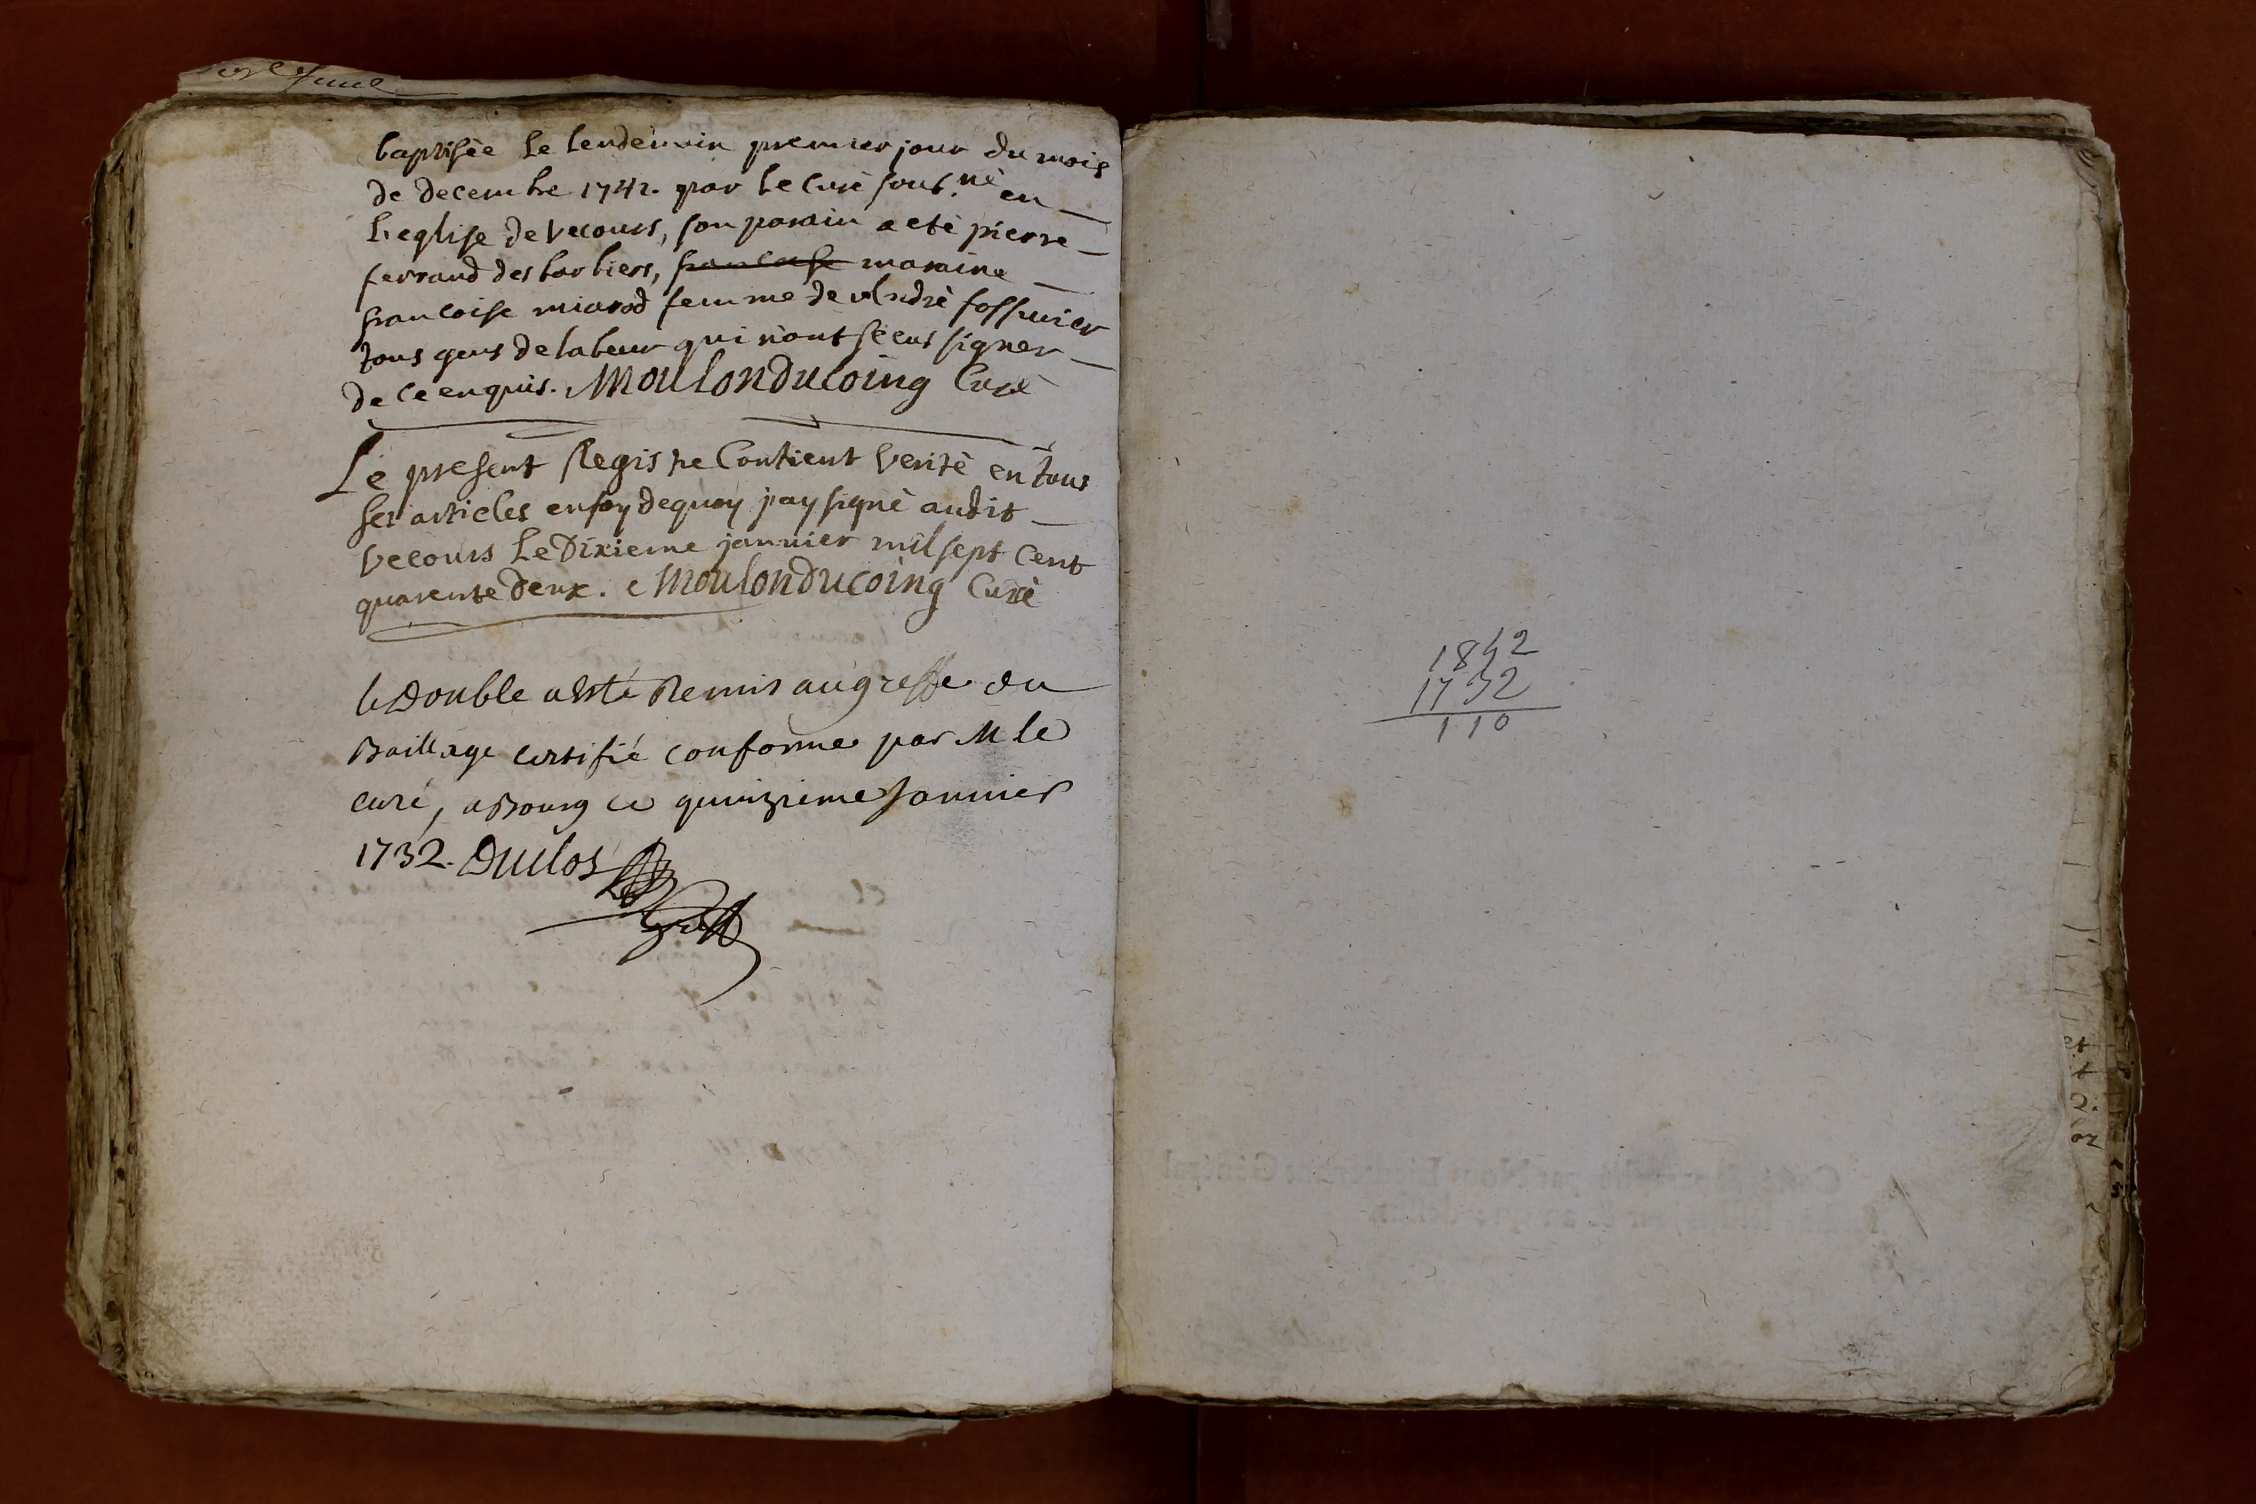 baptisèe le lendemain premier jour du mois
de decembre 1741. par le curè sous.nè en
l'eglise de Vecours, son parain a etè pierre
ferrand des barbiers, francoise maraine
francoise miarod femme de Andrè fossurier
tous gens de labeur qui n'ont sceus signer
de ce enquis. Moulonducoing Curè
Le present Registre Contient Veritè en tous
ses articles en foy dequoy j'ay signè audit
Vecours Le Dixieme janvier mil sept Cent
quarente Deux. Moulonducoing Curè
le Double a esté Remis au greffe du
Baillage certifié conforme par M le
curé, a Bourg ce quinzieme Janvier
1732. Duclos
1842
1732
110